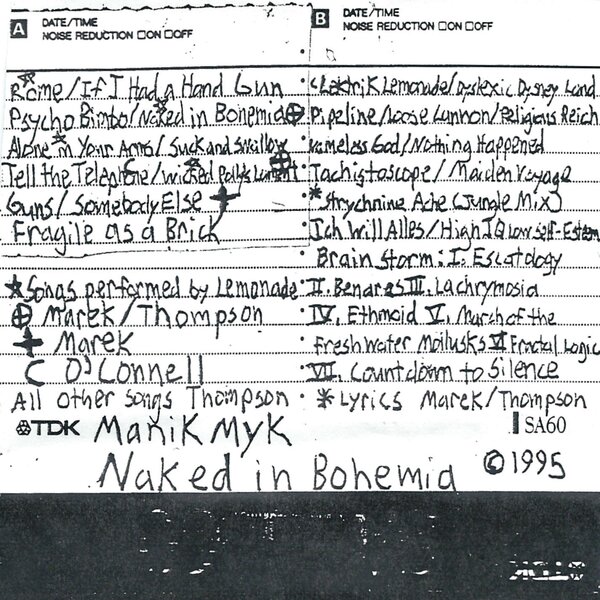 A DATE/TIME
NOISE REDUCTION □ON □OFF
Rome/If I Had a Hand Gun
Psycho Bimbo/Naked in Bohemia⊕
Alone in Your Arms/Suck and Swallow
Tell the Telephone/Wicked Lament
Guns/Somebody Else +
Fragile as a Brick
★Songs performed by Lemonade
⊕ Marek/Thompson
+ Marek
C O'Connell
All other songs Thompson
B DATE/TIME
NOISE REDUCTION □ON □OFF
Lemonade/Dyslexic Dysney Land
Pipeline/Loose Cannon/Religious Reich
Nameless God/Nothing Happened
Tachistoscope/Maiden Voyage
*Strychnine Ache (Jungle Mix)
Ich Will Alles/High IQ Low self-Esteem
Brain storm: I. Escatology
II. Benares III. Lachrymosia
IV. Ethmoid V. March of the
Fresh Water Mollusks VI Fractal Logic
VII. Countdown to Silence
*Lyrics Marek/Thompson
TDK Manik Myk SA60
Naked in Bohemia ©1995